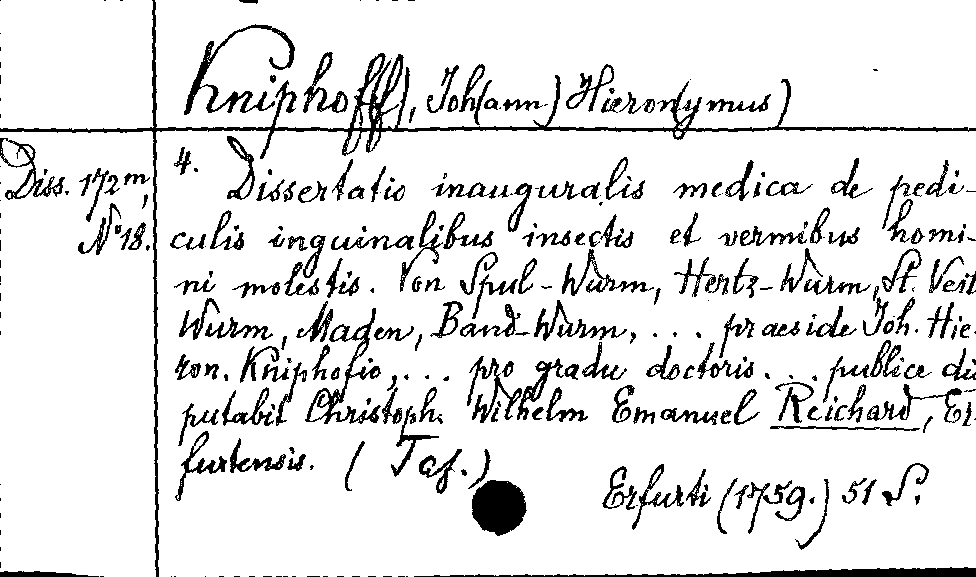 Kniphof(f), Joh(ann) Hieron(ymus)
Diss. 172m,
No 18.
4. Dissertatio inauguralis medica de pedi-
culis inguinalibus insectis et vermibus homi-
ni molestis. Von Spul-Wurm, Hertz-Wurm, St. Veit
Wurm, Maden, Band-Wurm, ... praeside Joh. Hie-
ron. Kniphofio, ... pro gradu doctoris ... publice dis
putabit Christoph. Wilhelm Emanuel Reichard, Er-
furtensis. (Taf.)
Erfurti (1759.) 51 S.